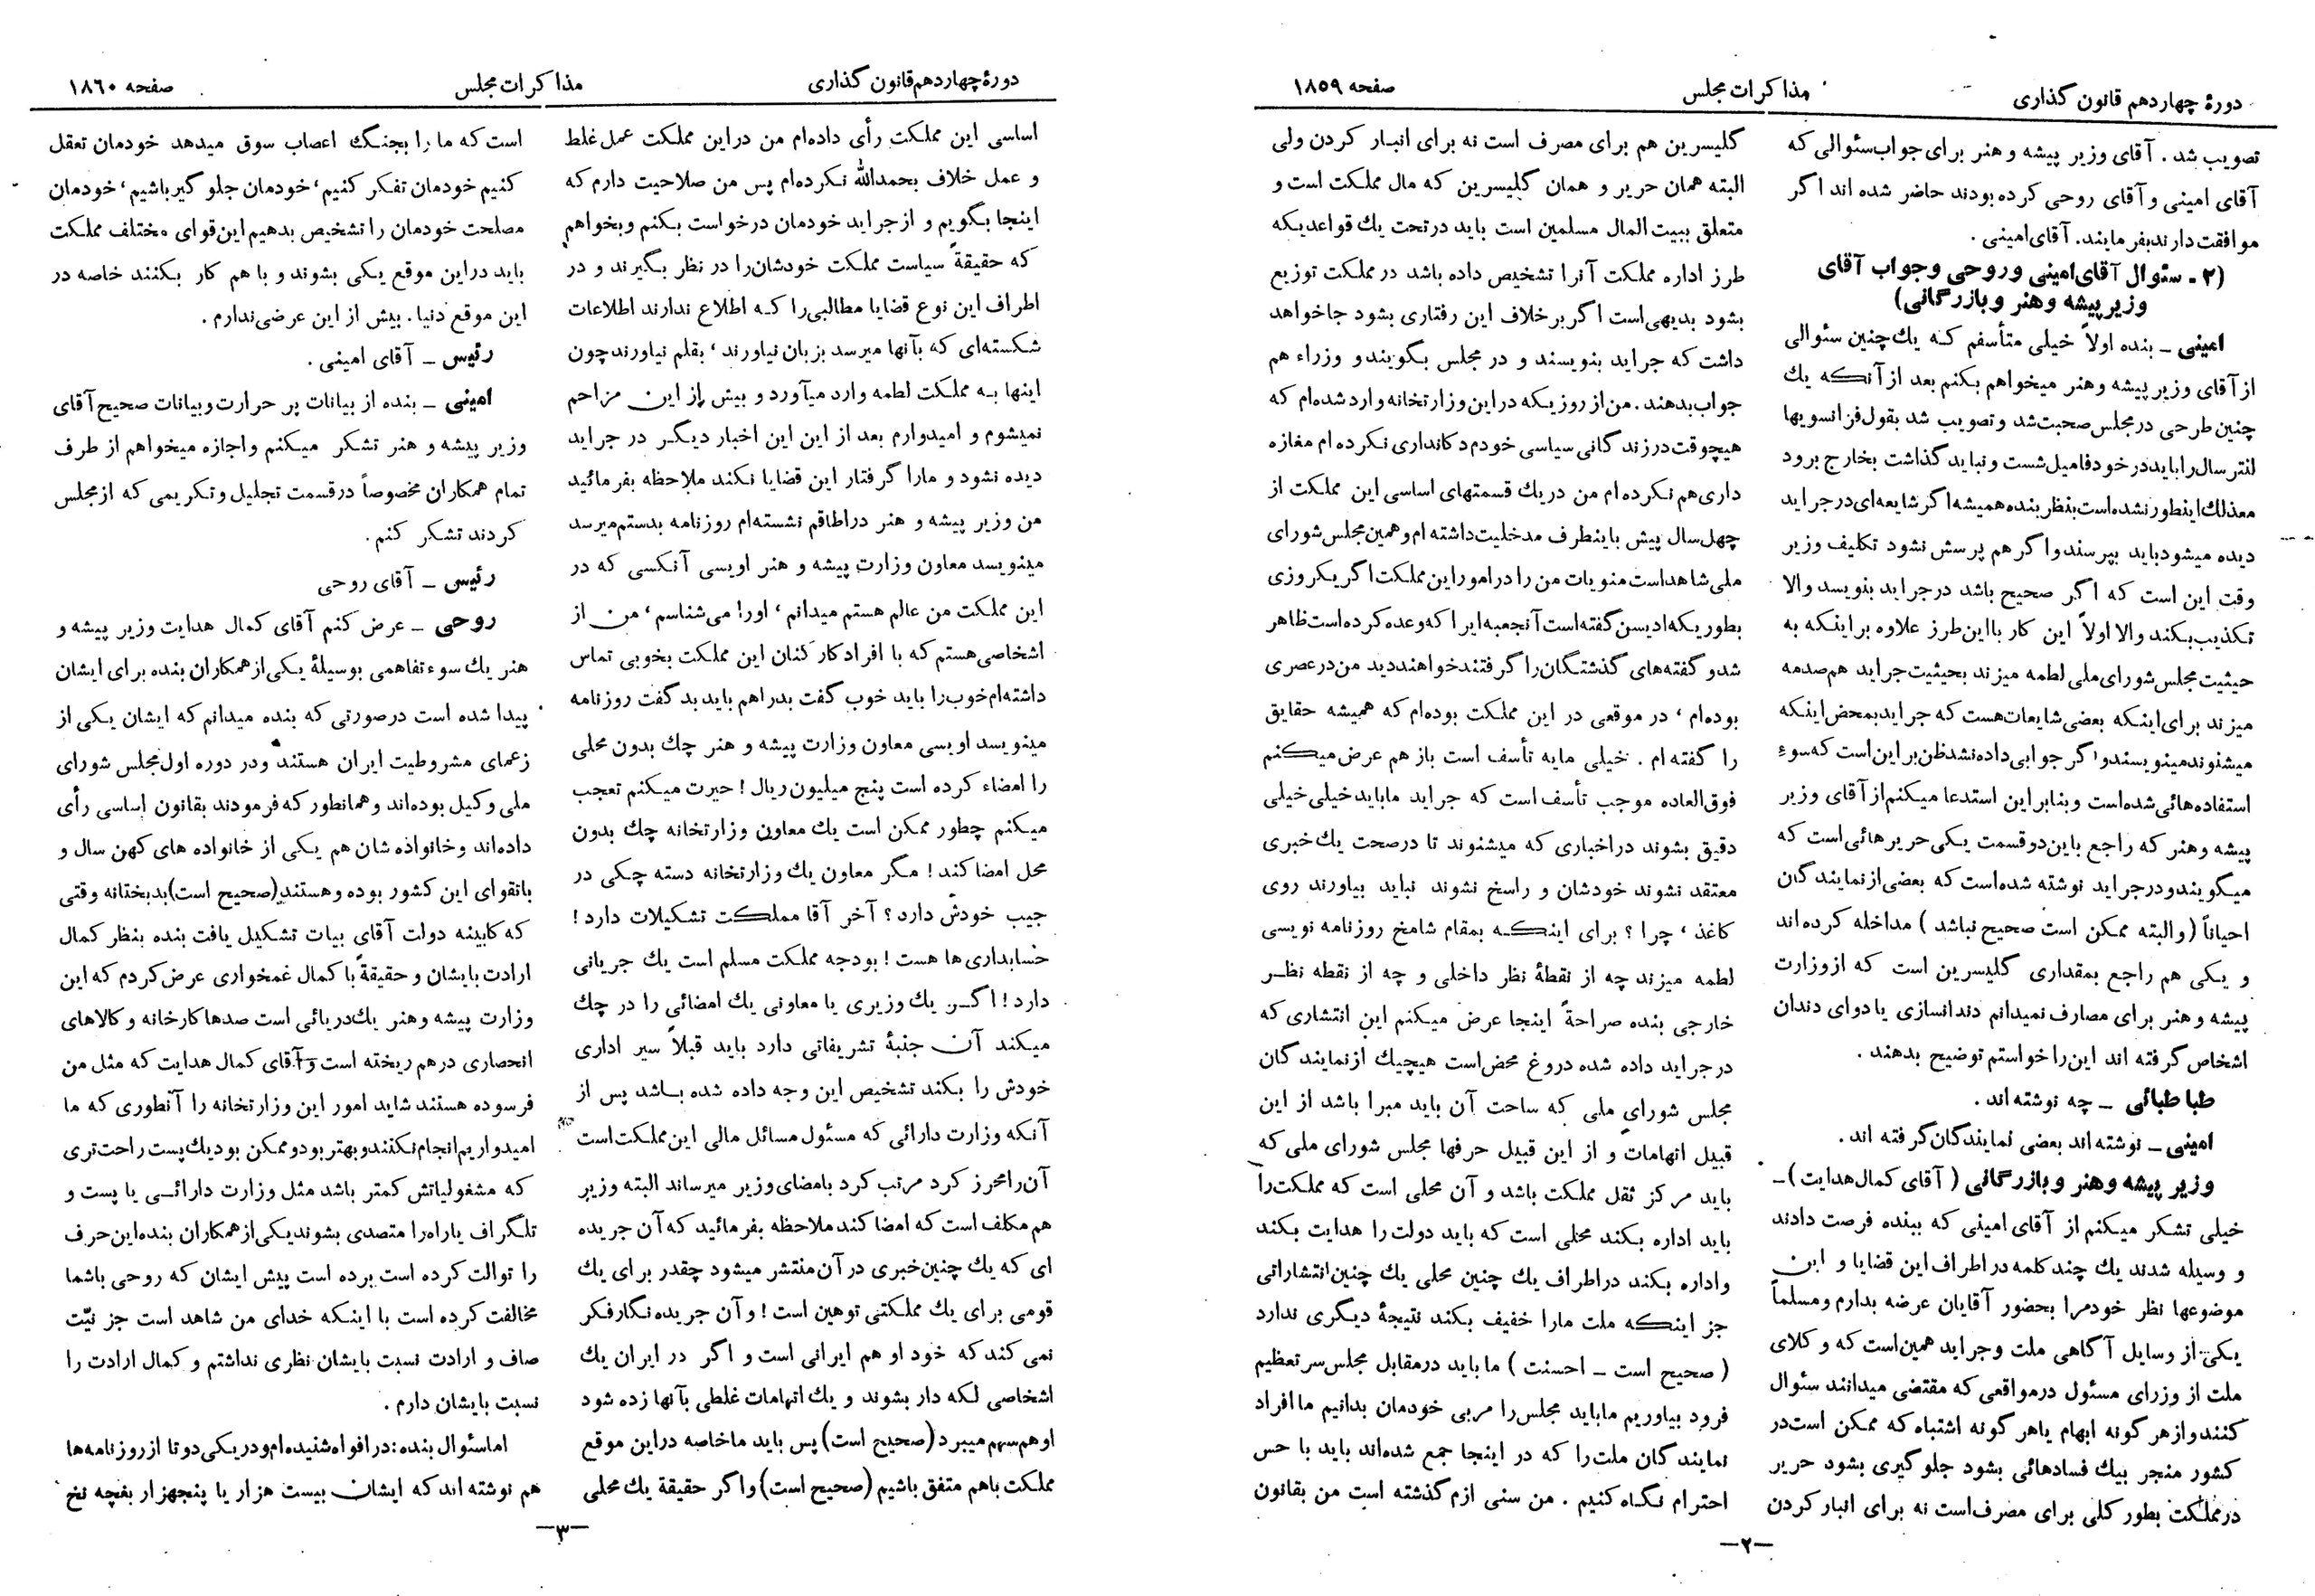 دورۀ چهاردهم قانون گذاری
مذاکرات مجلس
صفحه ۱۸۵۹
تصویب شد . آقای وزیر پیشه و هنر برای جواب سئوالی که
آقای امینی و آقای روحی کرده بودند حاضر شده اند اگر
موافقت دارند بفرمایند. آقای امینی .
(۲ - سئوال آقای امینی و روحی و جواب آقای
وزیر پیشه و هنر و بازرگانی)
امینی ــ بنده اولاً خیلی متأسفم که یك چنین سئوالی
از آقای وزیر پیشه وهنر میخواهم بکنم بعد از آنکه یك
چنین طرحی در مجلس صحبت شد و تصویب شد بقول فرانسویها
لنتر سال را باید در خود فامیل شست و نباید گذاشت بخارج برود
معذلك اینطور نشده است بنظر بنده همیشه اگر شایعه ای در جراید
دیده میشود باید بپرسند و اگر هم پرسش نشود تکلیف وزیر
وقت این است که اگر صحیح باشد در جراید بنویسد والا
تکذیب بکند والا اولاً این کار با این طرز علاوه بر اینکه به
حیثیت مجلس شورای ملی لطمه میزند بحیثیت جراید هم صدمه
میزند برای اینکه بعضی شایعات هست که جراید بمحض اینکه
میشنوند مینویسند و اگر جوابی داده نشد ظن بر این است که سوء
استفاده هائی شده است و بنابر این استدعا میکنم از آقای وزیر
پیشه وهنر که راجع باین دو قسمت یکی حریر هائی است که
میگویند و در جراید نوشته شده است که بعضی از نمایندگان
احیاناً ( والبته ممکن است صحیح نباشد ) مداخله کرده اند
و یکی هم راجع بمقداری گلیسرین است که از وزارت
پیشه و هنر برای مصارف نمیدانم دندانسازی یا دوای دندان
اشخاص گرفته اند این را خواستم توضیح بدهند .
طباطبائی ــ چه نوشته اند .
امینی ــ نوشته اند بعضی نمایندگان گرفته اند .
وزیر پیشه و هنر و بازرگانی ( آقای کمال هدایت ) ــ
خیلی تشکر میکنم از آقای امینی که ببنده فرصت دادند
و وسیله شدند یك چند کلمه در اطراف این قضایا و این
موضوعها نظر خودم را بحضور آقایان عرضه بدارم و مسلماً
یکی از وسایل آگاهی ملت و جراید همین است که وکلای
ملت از وزرای مسئول در مواقعی که مقتضی میدانند سئوال
کنند و از هر گونه ابهام یا هر گونه اشتباه که ممکن است در
کشور منجر بیك فسادهائی بشود جلوگیری بشود حریر
در مملکت بطور کلی برای مصرف است نه برای انبار کردن
گلیسرین هم برای مصرف است نه برای انبار کردن ولی
البته همان حریر و همان گلیسرین که مال مملکت است و
متعلق ببیت المال مسلمین است باید در تحت یك قواعدیکه
طرز اداره مملکت آنرا تشخیص داده باشد در مملکت توزیع
بشود بدیهی است اگر بر خلاف این رفتاری بشود جا خواهد
داشت که جراید بنویسند و در مجلس بگویند و وزراء هم
جواب بدهند . من از روزیکه در این وزارتخانه وارد شده ام که
هیچوقت در زندگانی سیاسی خودم دکانداری نکرده ام مغازه
داری هم نکرده ام من در یك قسمتهای اساسی این مملکت از
چهل سال پیش باینطرف مدخلیت داشته ام و همین مجلس شورای
ملی شاهد است منویات من را در امور این مملکت اگر یکروزی
بطوریکه ادیسن گفته است آنجعبه ایرا که وعده کرده است ظاهر
شد و گفته های گذشتگان را گرفتند خواهند دید من در عصری
بوده ام ، در موقعی در این مملکت بوده ام که همیشه حقایق
را گفته ام . خیلی مایه تأسف است باز هم عرض میکنم
فوق العاده موجب تأسف است که جراید ما باید خیلی خیلی
دقیق بشوند در اخباری که میشنوند تا در صحت یك خبری
معتقد نشوند خودشان و راسخ نشوند نباید بیاورند روی
کاغذ ، چرا ؟ برای اینکه بمقام شامخ روزنامه نویسی
لطمه میزند چه از نقطۀ نظر داخلی و چه از نقطه نظر
خارجی بنده صراحةً اینجا عرض میکنم این انتشاری که
در جراید داده شده دروغ محض است هیچیك از نمایندگان
مجلس شورای ملی که ساحت آن باید مبرا باشد از این
قبیل اتهامات و از این قبیل حرفها مجلس شورای ملی که
باید مرکز ثقل مملکت باشد و آن محلی است که مملکت را
باید اداره بکند محلی است که باید دولت را هدایت بکند
و اداره بکند در اطراف یك چنین محلی یك چنین انتشاراتی
جز اینکه ملت مارا خفیف بکند نتیجۀ دیگری ندارد
( صحیح است ــ احسنت ) ما باید در مقابل مجلس سر تعظیم
فرود بیاوریم ما باید مجلس را مربی خودمان بدانیم ما افراد
نمایندگان ملت را که در اینجا جمع شده اند باید با حس
احترام نگاه کنیم . من سنی ازم گذشته است من بقانون
ــ۲ــ
دورۀ چهاردهم قانون گذاری
مذاکرات مجلس
صفحه ۱۸۶۰
اساسی این مملکت رأی داده ام من در این مملکت عمل غلط
و عمل خلاف بحمدالله نکرده ام پس من صلاحیت دارم که
اینجا بگویم و از جراید خودمان درخواست بکنم و بخواهم
که حقیقةً سیاست مملکت خودشان را در نظر بگیرند و در
اطراف این نوع قضایا مطالبی را که اطلاع ندارند اطلاعات
شکسته ای که بآنها میرسد بزبان نیاورند ، بقلم نیاورند چون
اینها به مملکت لطمه وارد میآورد و بیش از این مزاحم
نمیشوم و امیدوارم بعد از این این اخبار دیگر در جراید
دیده نشود و مارا گرفتار این قضایا نکند ملاحظه بفرمائید
من وزیر پیشه و هنر در اطاقم نشسته ام روزنامه بدستم میرسد
مینویسد معاون وزارت پیشه و هنر اویسی آنکسی که در
این مملکت من عالم هستم میدانم ، اورا می شناسم ، من از
اشخاصی هستم که با افراد کارکنان این مملکت بخوبی تماس
داشته ام خوب را باید خوب گفت بد را هم باید بد گفت روزنامه
مینویسد اویسی معاون وزارت پیشه و هنر چك بدون محلی
را امضاء کرده است پنج میلیون ریال ! حیرت میکنم تعجب
میکنم چطور ممکن است یك معاون وزارتخانه چك بدون
محل امضا کند ! مگر معاون یك وزارتخانه دسته چکی در
جیب خودش دارد ؟ آخر آقا مملکت تشکیلات دارد !
حسابداری ها هست ! بودجه مملکت مسلم است یك جریانی
دارد ! اگر یك وزیری یا معاونی یك امضائی را در چك
میکند آن جنبۀ تشریفاتی دارد باید قبلاً سیر اداری
خودش را بکند تشخیص این وجه داده شده باشد پس از
آنکه وزارت دارائی که مسئول مسائل مالی این مملکت است
آن را محرز کرد مرتب کرد بامضای وزیر میرساند البته وزیر
هم مکلف است که امضا کند ملاحظه بفرمائید که آن جریده
ای که یك چنین خبری در آن منتشر میشود چقدر برای یك
قومی برای یك مملکتی توهین است ! و آن جریده نگار فکر
نمی کند که خود او هم ایرانی است و اگر در ایران یك
اشخاصی لکه دار بشوند و یك اتهامات غلطی بآنها زده شود
او هم سهم میبرد (صحیح است) پس باید ما خاصه در این موقع
مملکت باهم متفق باشیم (صحیح است) و اگر حقیقة یك محلی
است که ما را بجنگ اعصاب سوق میدهد خودمان تعقل
کنیم خودمان تفکر کنیم ، خودمان جلوگیر باشیم ، خودمان
مصلحت خودمان را تشخیص بدهیم این قوای مختلف مملکت
باید در این موقع یکی بشوند و با هم کار بکنند خاصه در
این موقع دنیا . بیش از این عرضی ندارم .
رئیس ــ آقای امینی .
امینی ــ بنده از بیانات پر حرارت و بیانات صحیح آقای
وزیر پیشه و هنر تشکر میکنم و اجازه میخواهم از طرف
تمام همکاران مخصوصاً در قسمت تجلیل و تکریمی که از مجلس
کردند تشکر کنم .
رئیس ــ آقای روحی
روحی ــ عرض کنم آقای کمال هدایت وزیر پیشه و
هنر یك سوء تفاهمی بوسیلۀ یکی از همکاران بنده برای ایشان
پیدا شده است در صورتی که بنده میدانم که ایشان یکی از
زعمای مشروطیت ایران هستند و در دوره اول مجلس شورای
ملی وکیل بوده اند و همانطور که فرمودند بقانون اساسی رأی
داده اند و خانواده شان هم یکی از خانواده های کهن سال و
باتقوای این کشور بوده و هستند (صحیح است) بدبختانه وقتی
که کابینه دولت آقای بیات تشکیل یافت بنده بنظر کمال
ارادت بایشان و حقیقةً با کمال غمخواری عرض کردم که این
وزارت پیشه و هنر یك دریائی است صدها کارخانه و کالاهای
انحصاری در هم ریخته است و آقای کمال هدایت که مثل من
فرسوده هستند شاید امور این وزارتخانه را آنطوری که ما
امیدواریم انجام نکنند و بهتر بود و ممکن بود یك پست راحت تری
که مشغولیاتش کمتر باشد مثل وزارت دارائی یا پست و
تلگراف یا راه را متصدی بشوند یکی از همکاران بنده این حرف
را توالت کرده است برده است پیش ایشان که روحی باشما
مخالفت کرده است با اینکه خدای من شاهد است جز نیّت
صاف و ارادت نسبت بایشان نظری نداشتم و کمال ارادت را
نسبت بایشان دارم .
اما سئوال بنده : در افواه شنیده ام و در یکی دو تا از روزنامه ها
هم نوشته اند که ایشان بیست هزار یا پنجهزار بقچه نخ
ــ۳ــ